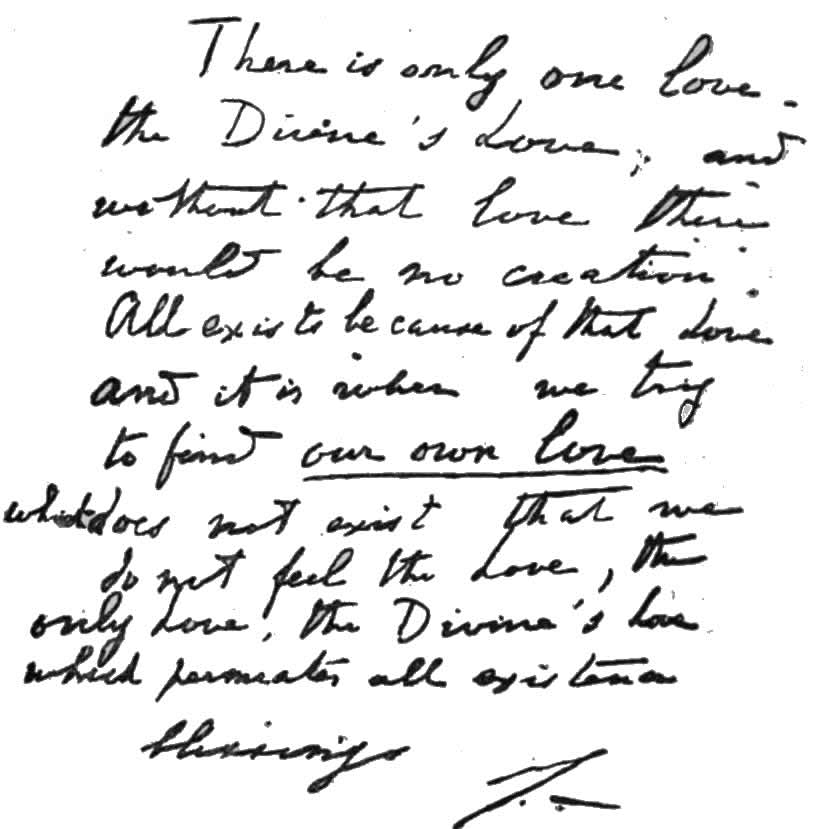 There is only one love -
the Divine's Love, and
without that love there
would be no creation.
All exists because of that Love
and it is when we try
to find our own love
which does not exist that we
do not feel the Love, the
only Love, the Divine's Love
which permeates all existence
blessings